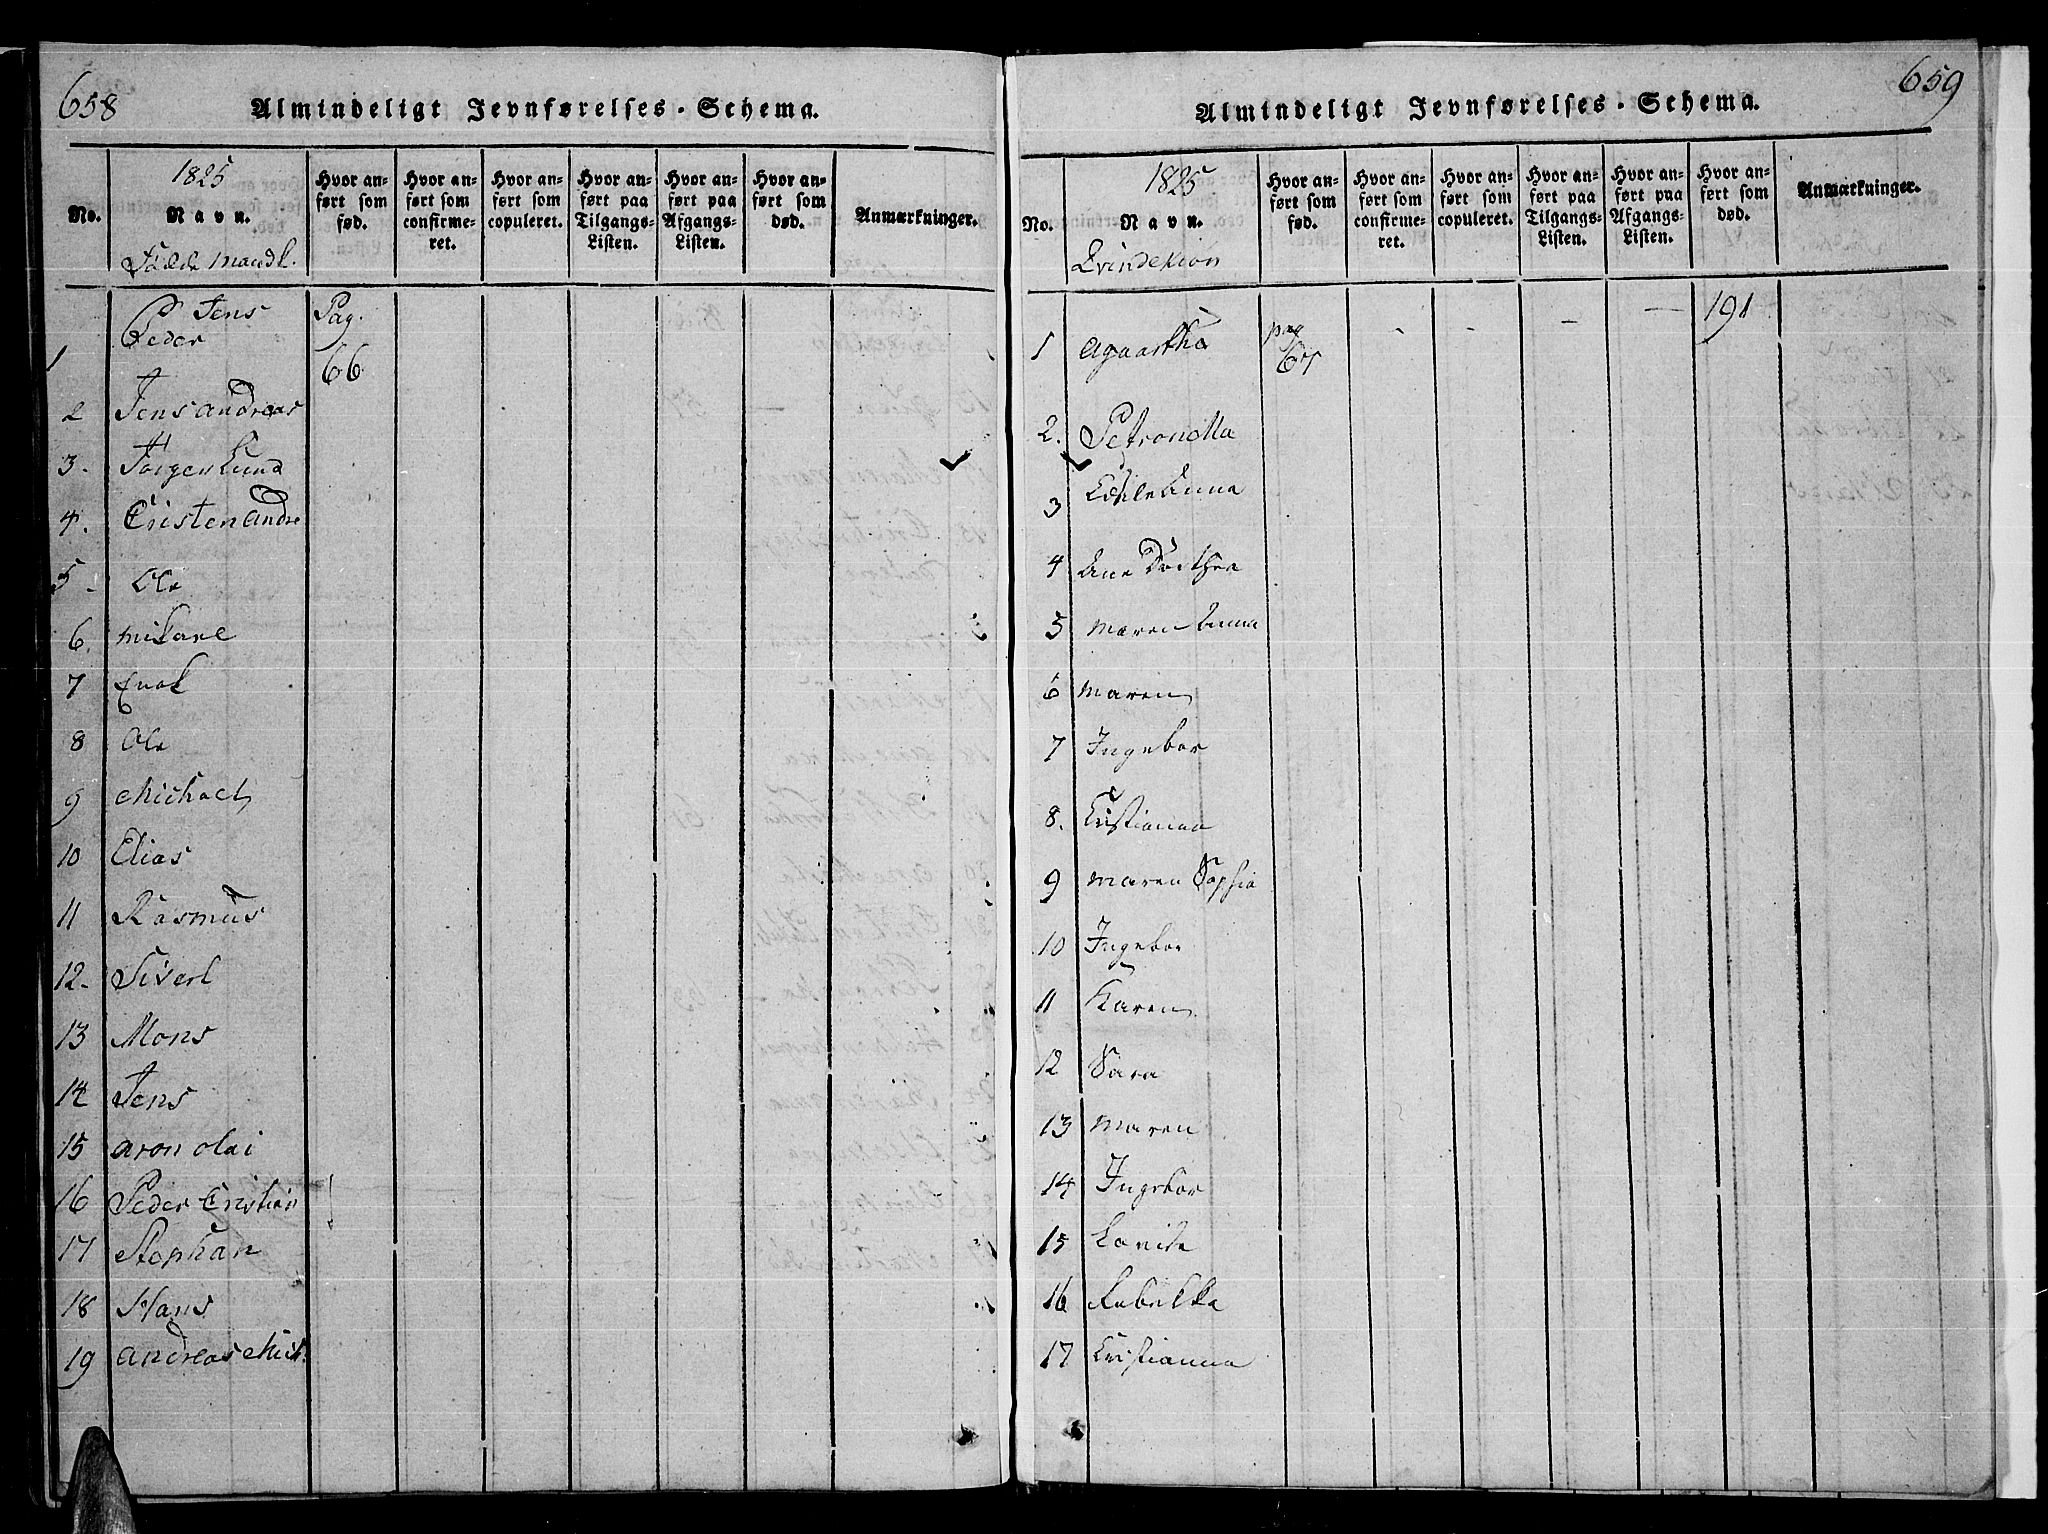 658
Almindeligt Jevnførelses-Schema.
No.
1825
Navn.
Fødde Mandk.
Hvor an-
ført som
fød.
Hvor an-
ført som
confirme-
ret.
Hvor an-
ført som
copuleret.
Hvor an-
ført paa
Tilgangs-
Listen.
Hvor an-
ført paa
Afgangs-
Listen.
Hvor an-
ført som
død.
Anmærkninger.
Jens
1 Peder Pag.
66
2 Jens andreas
3. Jørgen Lund
4. Cristen andre
5. Ole
6. mikael
7 Enok
8 Ole
9 Michael
10 Elias
11 Rasmus
12. Sivert
13 Mons
14 Jens
15 aron olai
16 Peder Cristian
17 Stephan
18 Hans
19 andreas Mich.
659
Almindeligt Jevnførelses-Schema.
No.
1825
Navn.
Qvindekiøn
Hvor an-
ført som
fød.
Hvor an-
ført som
confirme-
ret.
Hvor an-
ført som
copuleret.
Hvor an-
ført paa
Tilgangs-
Listen.
Hvor an-
ført paa
Afgangs-
Listen.
Hvor an-
ført som
død.
Anmærkninger.
1 Agaartha pag 67 - - - - 191
2. Petronella
3 Anna
4 Ane Dorthea
5 Maren Anna
6 Maren
7 Ingebor
8. Cristianna
9 Maren Sophia
10 Ingebor
11 Karen
12 Sara
13 Maren
14 Ingebor
15 Lovisa
16 Rebekka
17 Cristianna